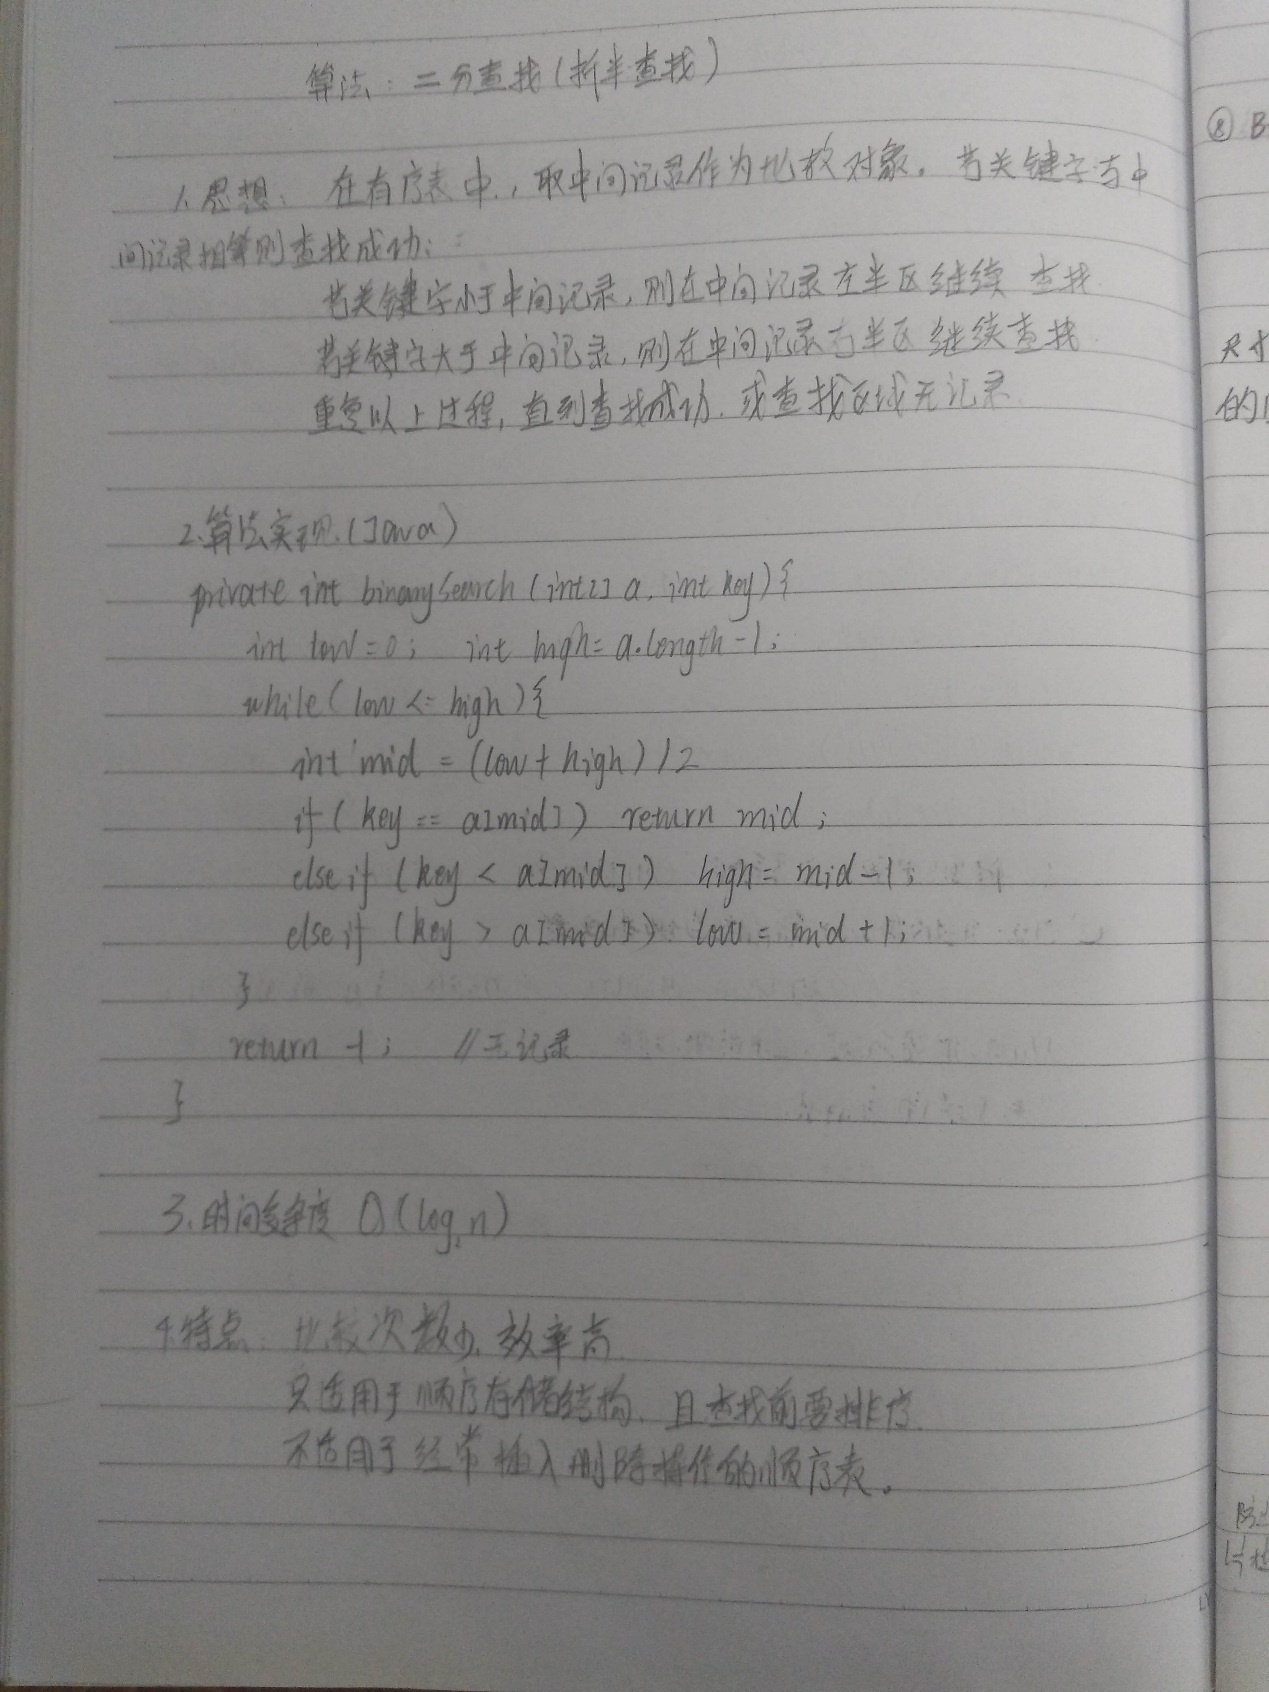 算法：二分查找（折半查找）
1.思想：在有序表中，取中间记录作为比较对象。若关键字与中
间记录相等则查找成功；
若关键字小于中间记录，则在中间记录左半区继续查找
若关键字大于中间记录，则在中间记录右半区继续查找
重复以上过程，直到查找成功，或查找区域无记录
2.算法实现（Java）
private int binarySearch (int[] a, int key){
int low=0; int high=a.length-1;
while(low <= high){
int mid = (low + high)/2
if( key == a[mid]) return mid;
else if (key < a[mid]) high = mid-1;
else if (key > a[mid]) low = mid+1;
}
return -1; //无记录
}
3.时间复杂度 O(log₂n)
4.特点：比较次数少，效率高
只适用于顺序存储结构，且查找前要排序
不适用于经常插入删除操作的顺序表。
② B
尺寸
的